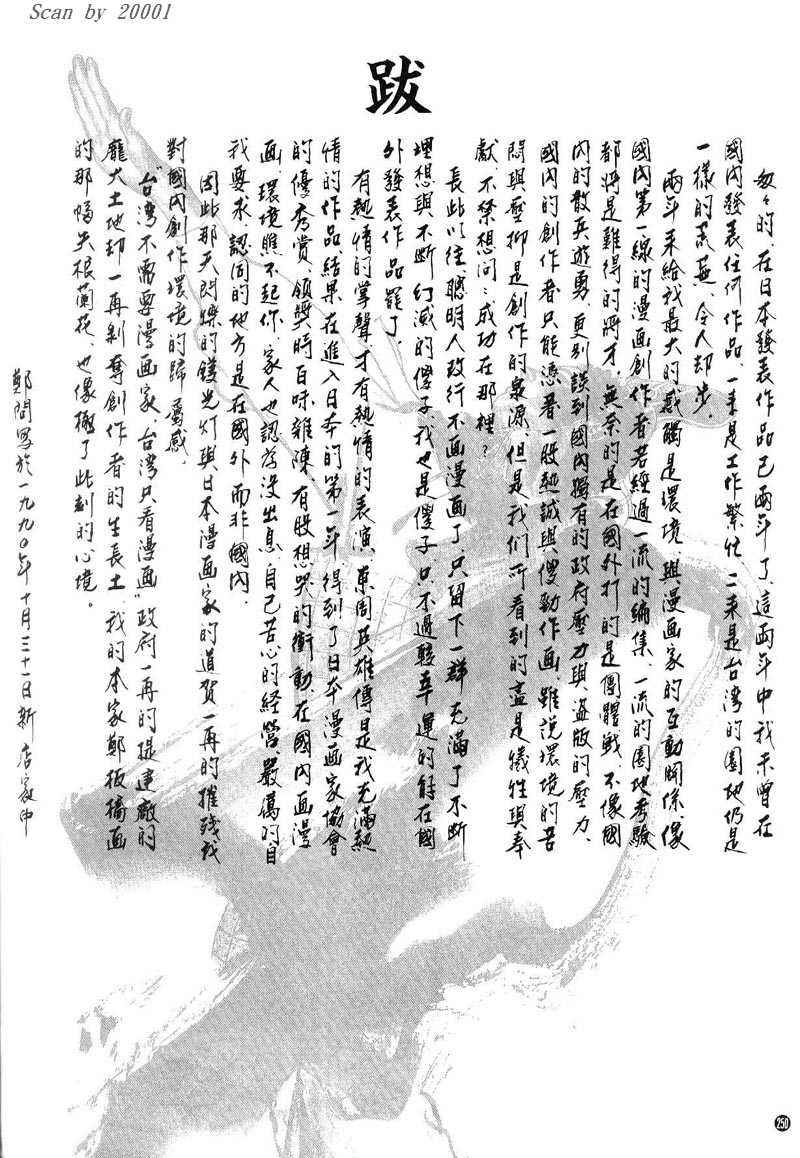 Scan by 20001
跋
匆々的、在日本發表作品已兩年了、這兩年中我未曾在
國內發表任何作品、一來是工作繁忙、二來是台灣的園地仍是
一樣的荒蕪、令人却步。
兩年來給我最大的感觸是環境、與漫画家的互動關係、像
國內第一線的漫画創作者若經過一流的編集、一流的園地考驗
都將是難得的將才、無奈的是在國外打的是團體戰、不像國
內的散兵遊勇、更別談到國內獨有的政府壓力與盜版的壓力、
國內的創作者只能憑着一股熱誠與傻勁作画、雖說環境的苦
悶與壓抑是創作的泉源、但是我們所看到的盡是犧牲與奉
獻、不禁想問：成功在那裡？
長此以往、聰明人改行不画漫画了、只留下一群充滿了不斷
理想與不斷幻滅的傻子、我也是傻子、只不過較幸運的能在國
外發表作品罷了。
有熱情的掌聲才有熱情的表演、東周英雄傳是我充滿熱
情的作品、結果在進入日本的第一年得到了日本漫画家協會
的優秀賞、領獎時百味雜陳、有股想哭的衝動、在國內画漫
画、環境瞧不起你、家人也認為沒出息、自己苦心的經營、嚴厲的自
我要求、認同的地方是在國外而非國內、
因此那天閃爍的鎂光灯與日本漫画家的道賀一再的摧殘我
對國內創作環境的歸屬感、
"台灣不需要漫画家、台灣只看漫画"政府一再的提建廠的
龐大土地却一再剝奪創作者的生長土、我的本家鄭板橋画
的那幅失根蘭花、也像極了此刻的心境。
鄭問寫於一九九〇年十月三十一日新店家中
250